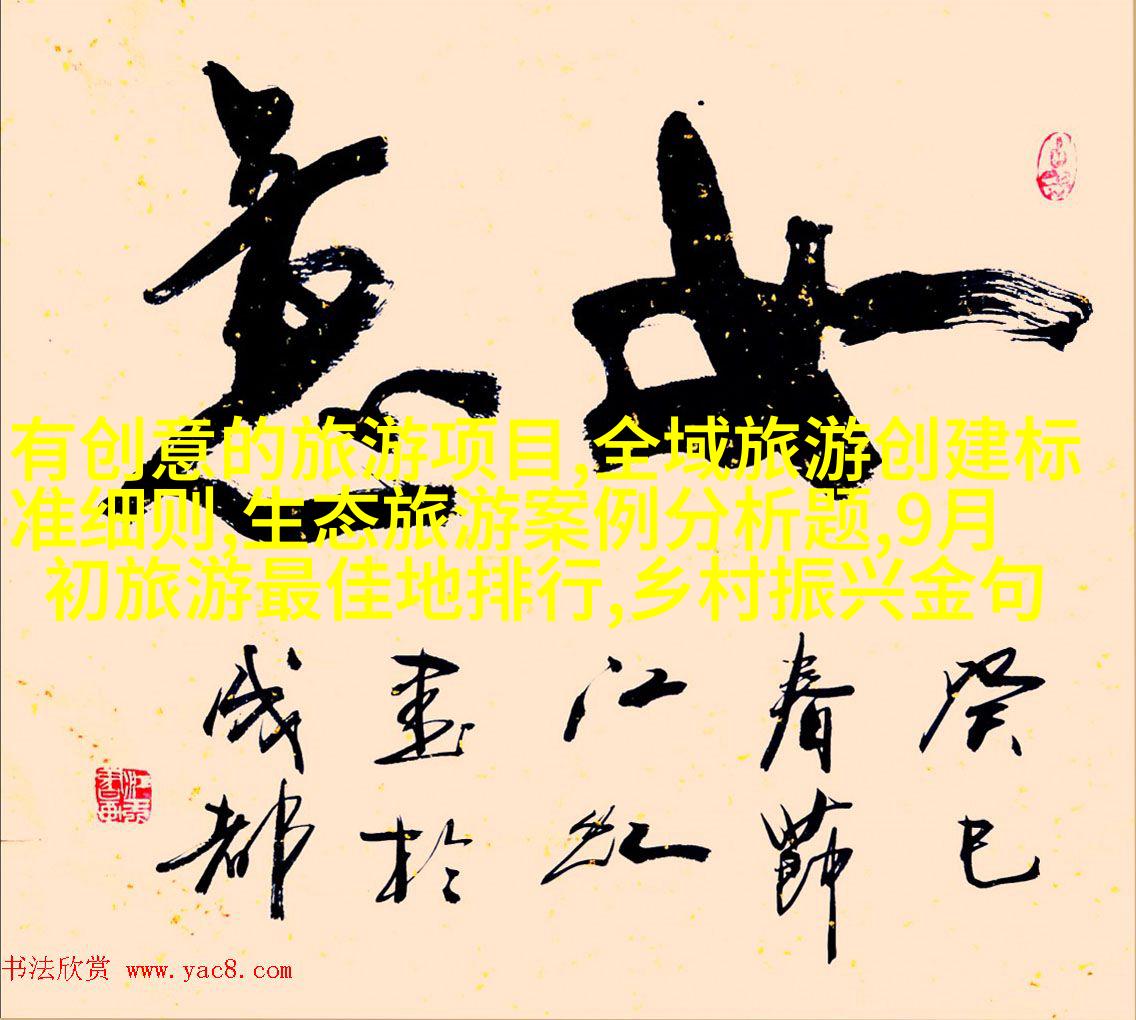 如意
有创意的旅游项目,全域旅游创建标
准细则,生态旅游案例分析题,9月
初旅游最佳地排行,乡村振兴金句
癸巳
春节
江红
书于
成都
书法欣赏 www.yac8.com